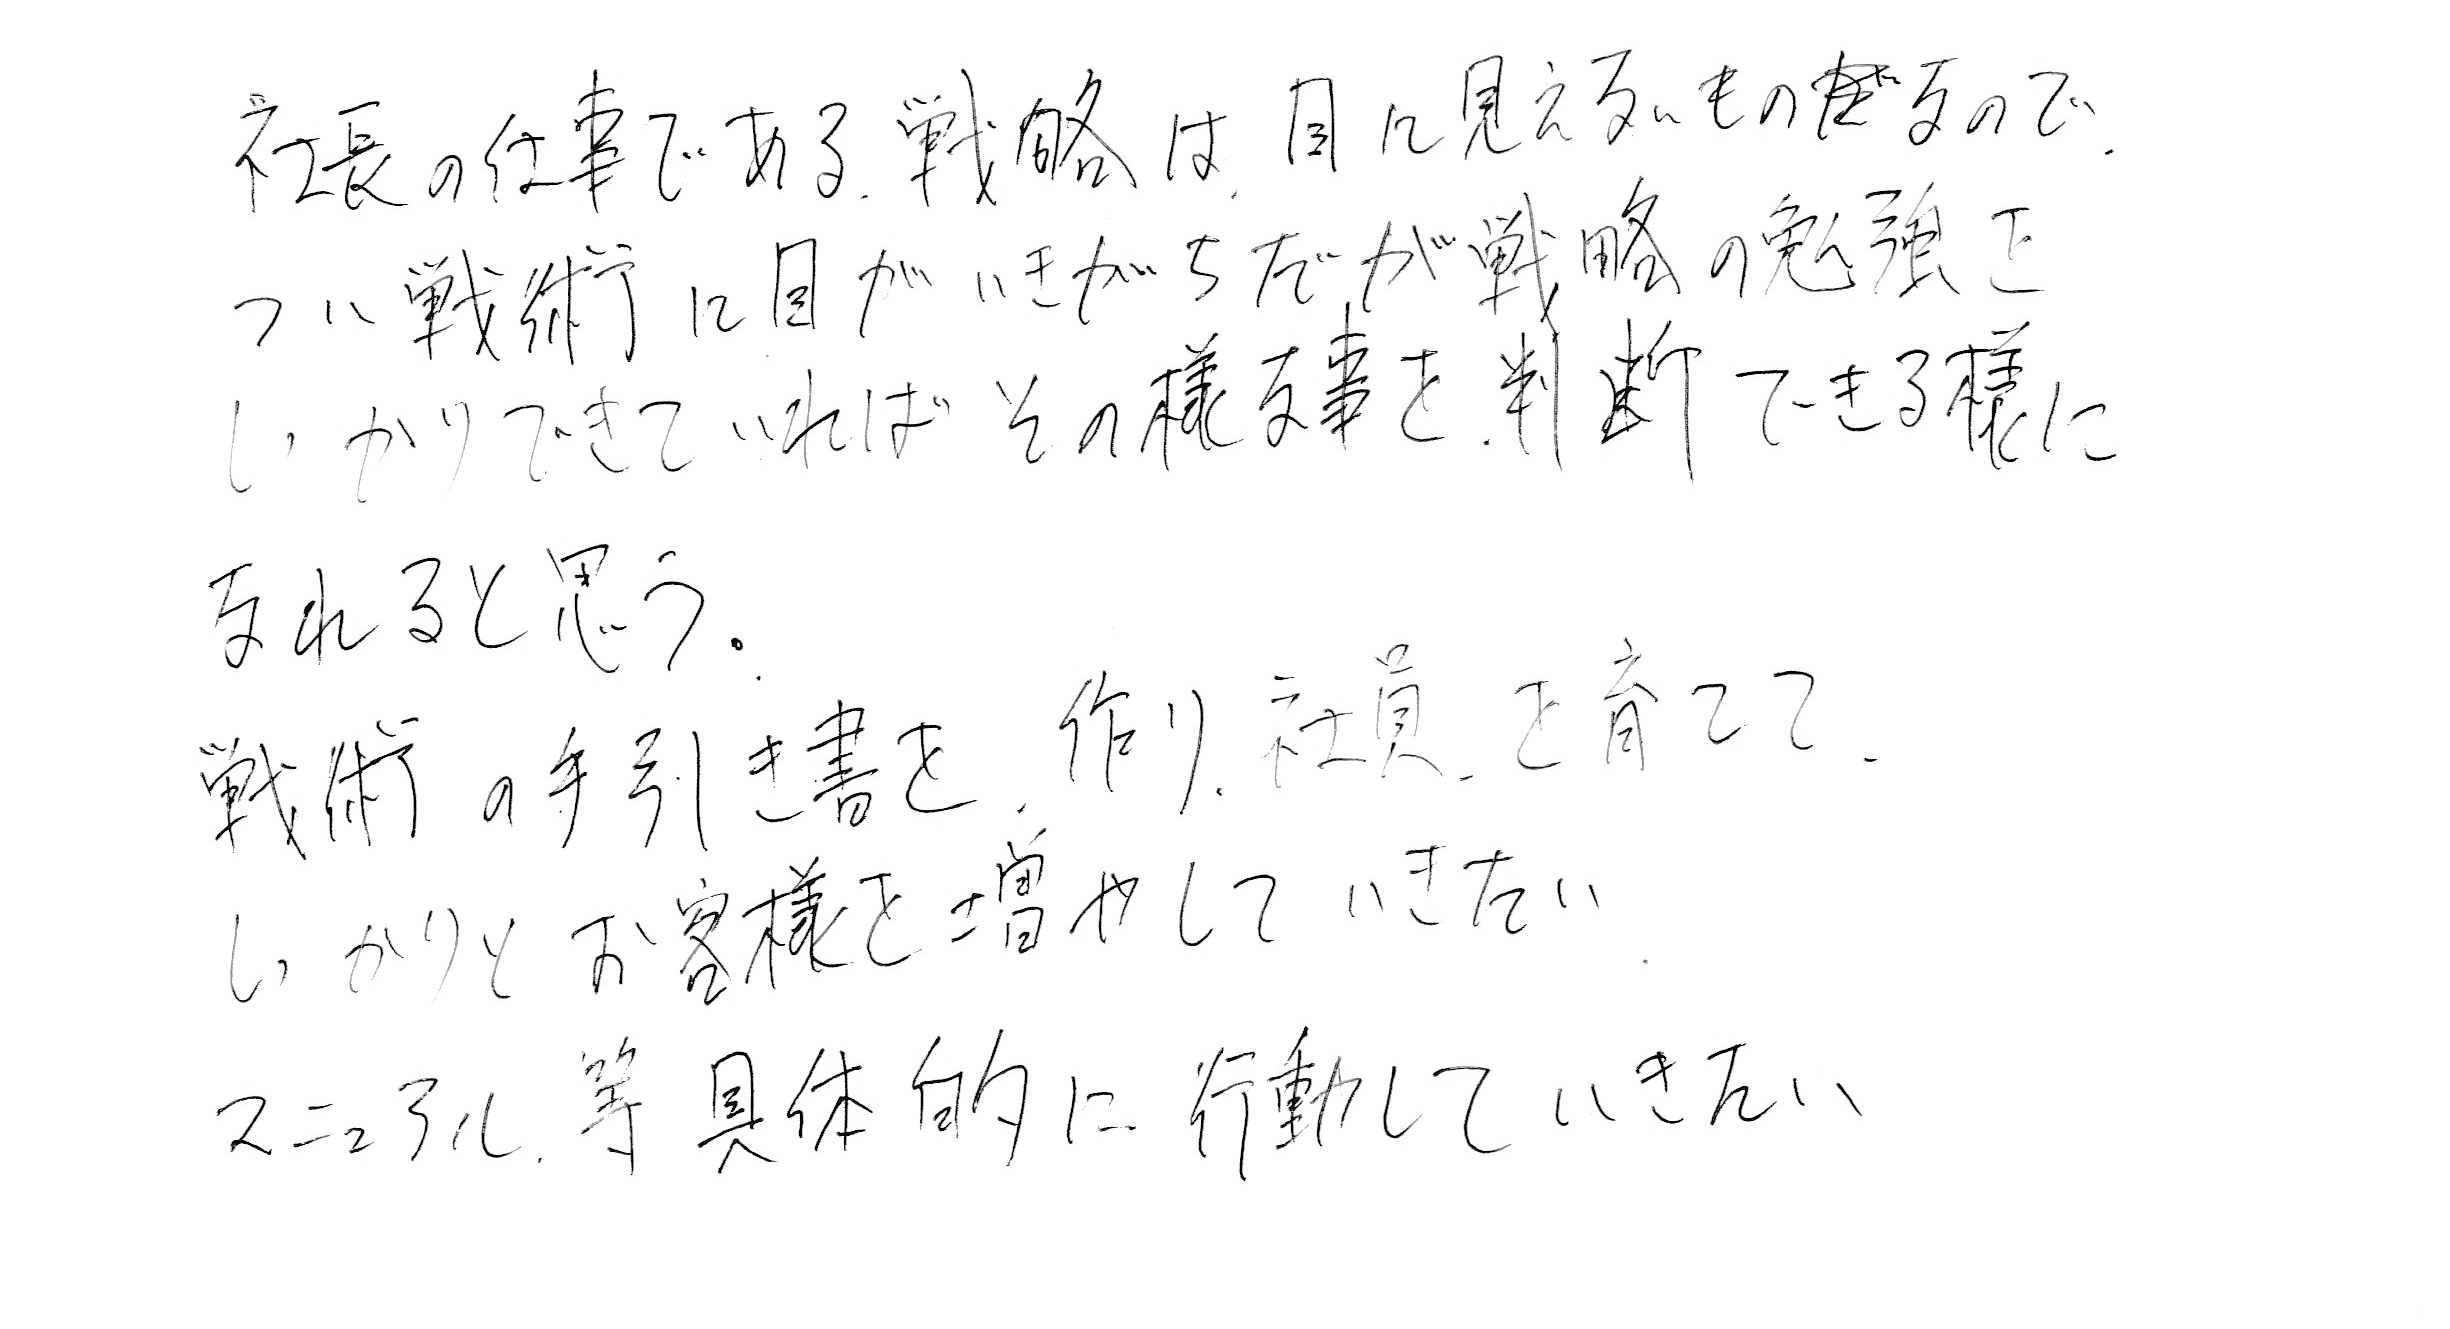 社長の仕事である、戦略は、目に見えないものなので、
つい戦術に目がいきがちだが戦略の勉強を
しっかりできていればその様な事を、判断できる様に
なれると思う。
戦術の手引き書を、作り、社員、を育てて、
しっかりとお客様を増やしていきたい、
マニュアル、等具体的に行動していきたい